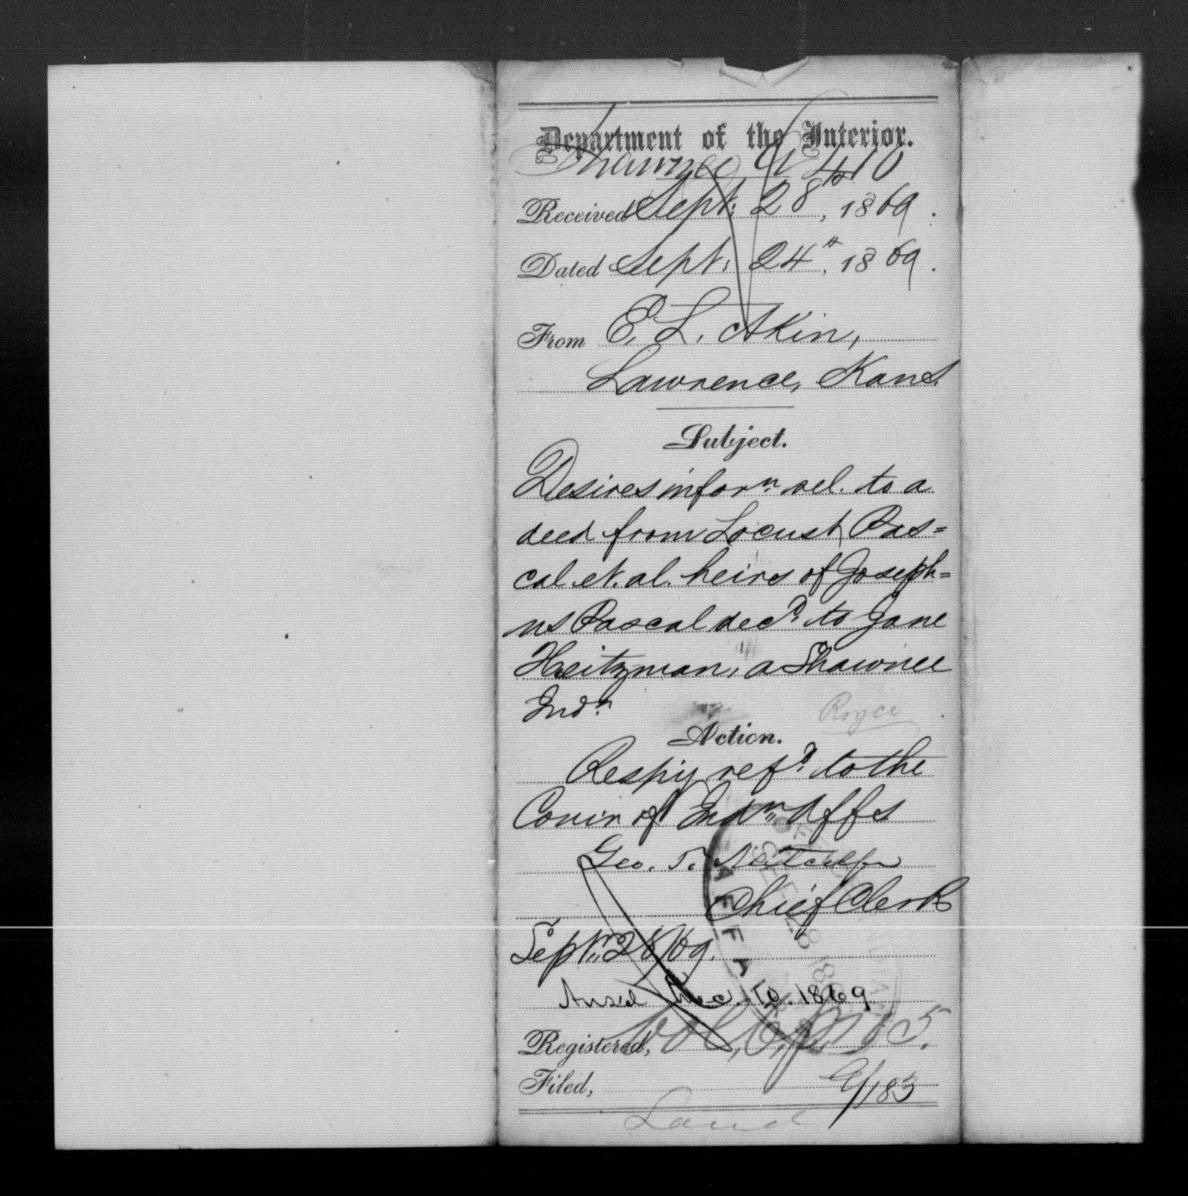 Department of the Interior.
Shawnee A 410
Received Sept. 28th, 1869.
Dated Sept. 24th, 1869.
From E. L. Akin,
Lawrence, Kans.
Subject.
Desires inforn rel. to a
deed from Locust Pas=
cal et. al. heirs of Joseph=
us Pascal decd to Jane
Heitzman, a Shawnee
Indn
Royce
Action.
Respy refd to the
Comr of Indn Affs
Geo. T. Metcalf
Chief Clerk
Septr 28/69.
Ansd Dec. 10. 1869
Registered, vol. 6, p. 215.
Filed, A/183
Land